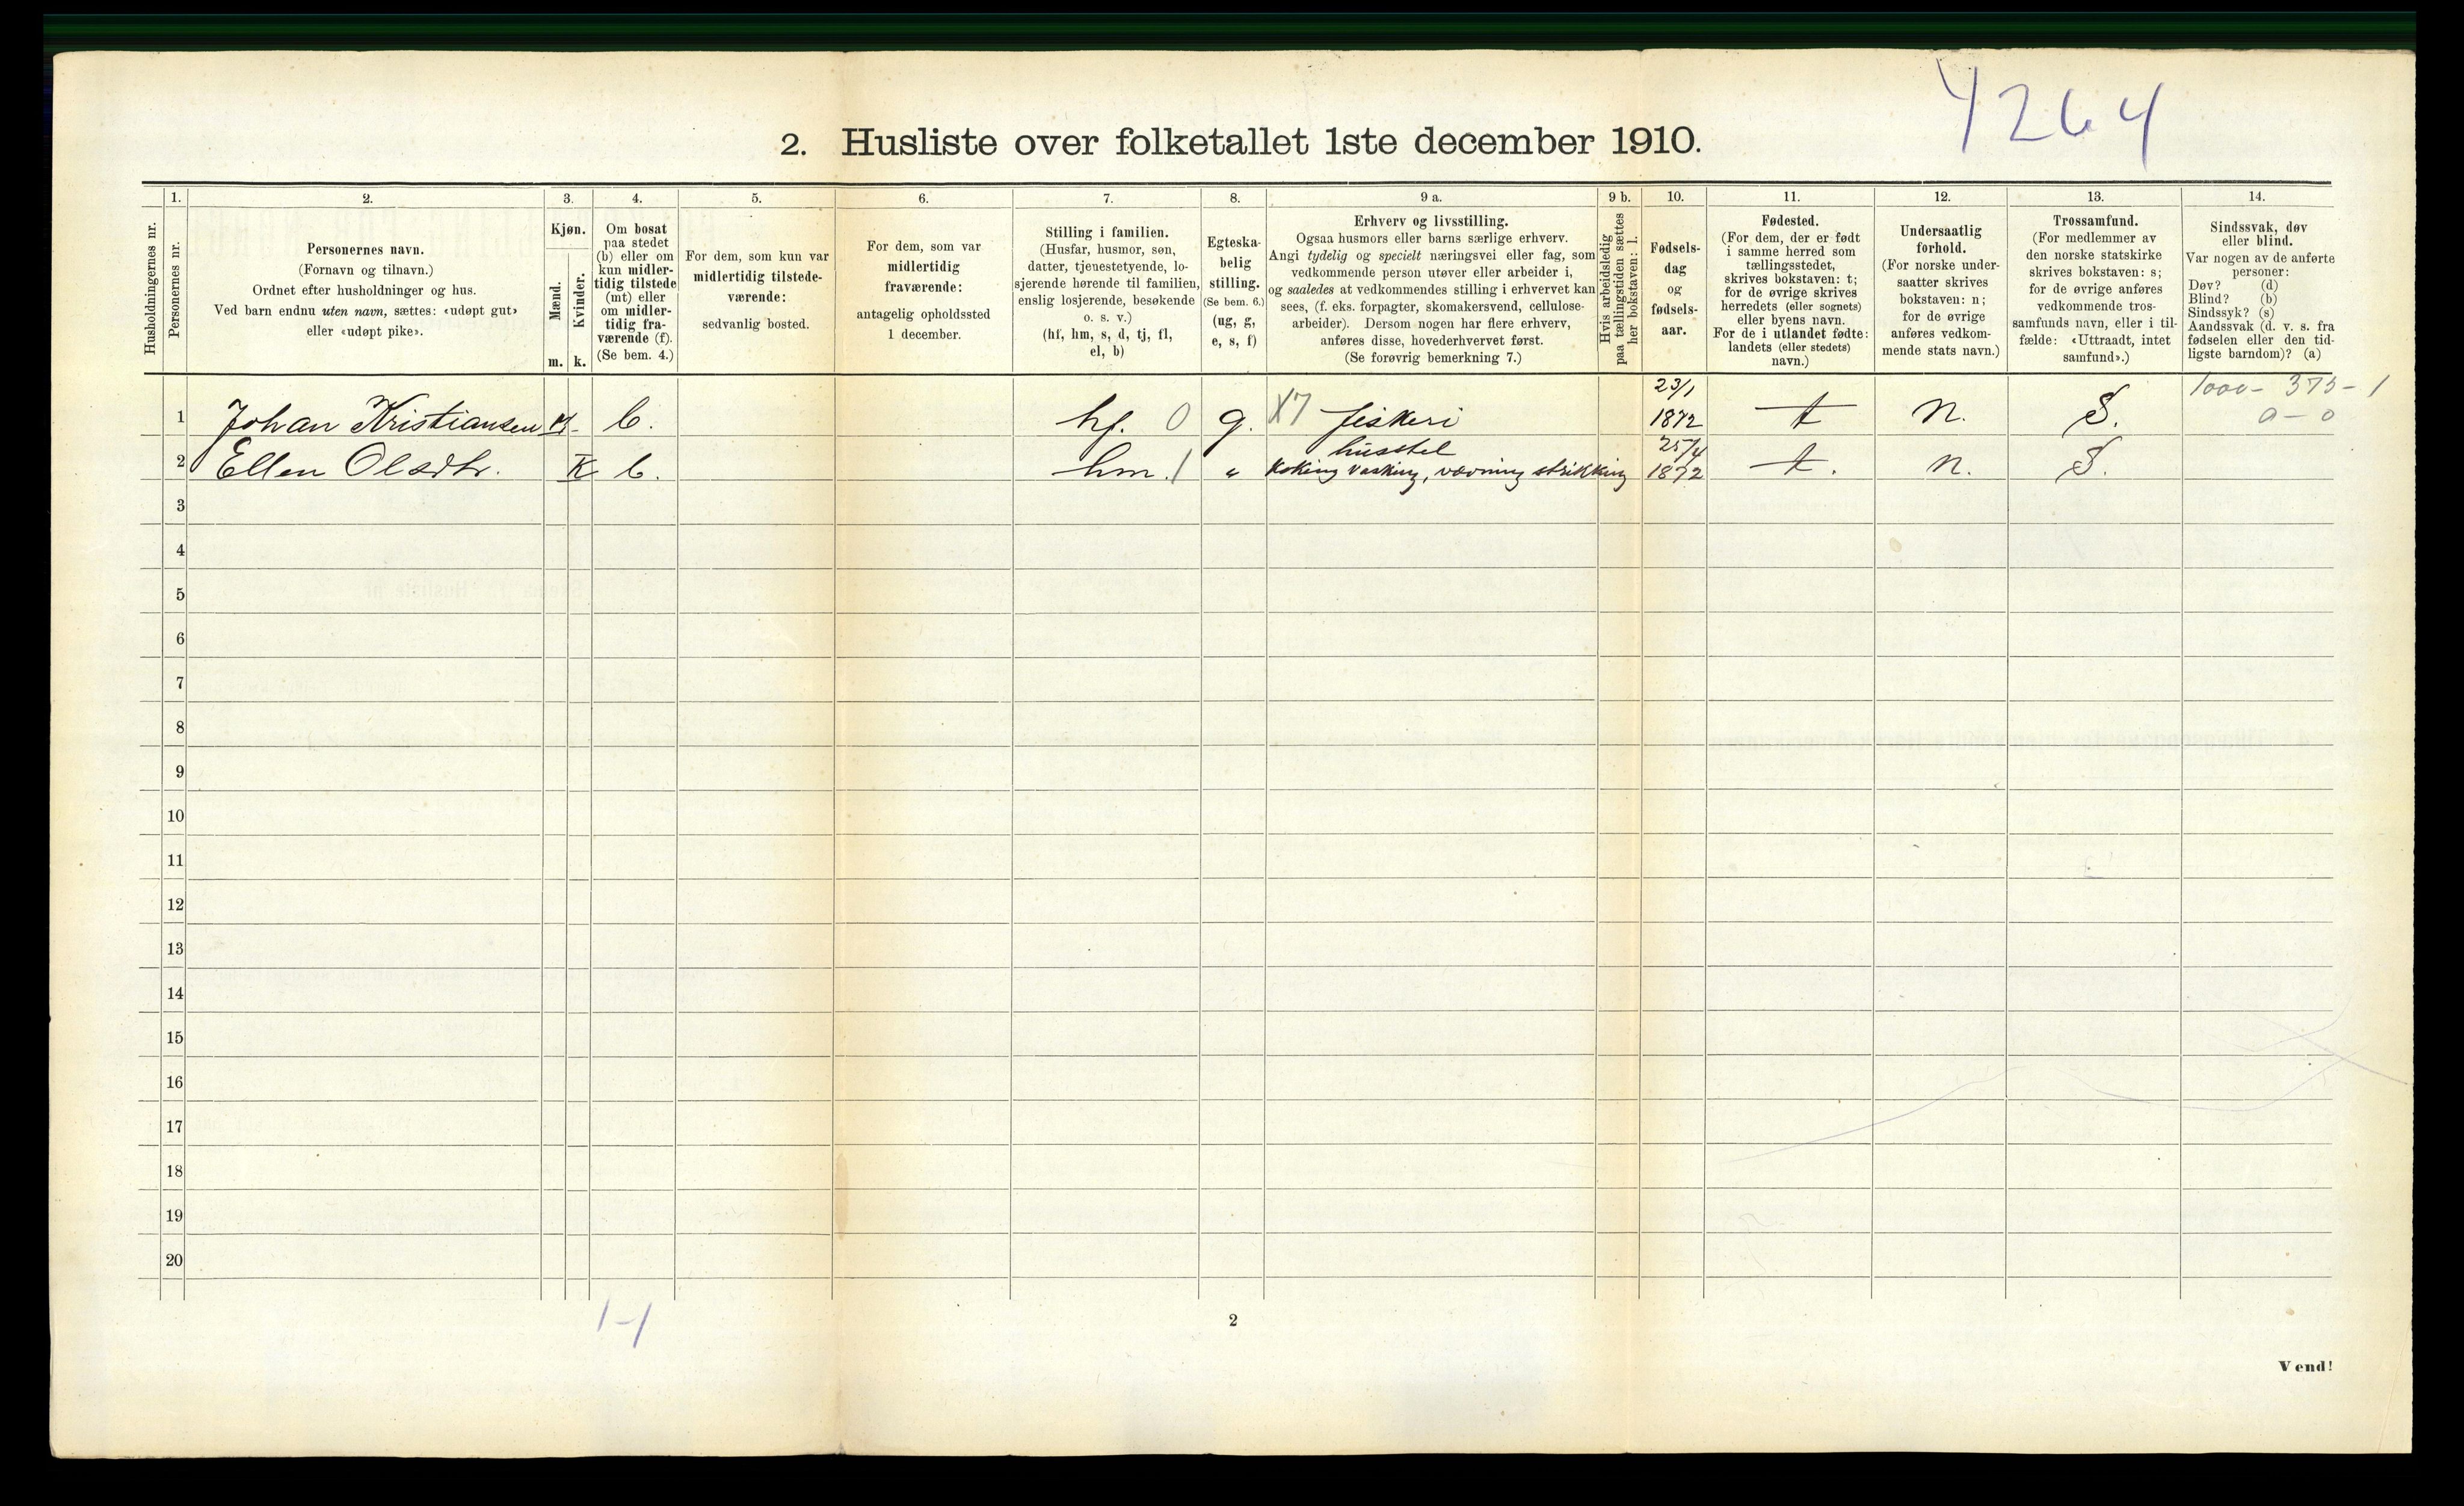 4264
2. Husliste over folketallet 1ste december 1910.
Husholdningernes nr.
1.
Personernes nr.
2.
Personernes navn.
(Fornavn og tilnavn.)
Ordnet efter husholdninger og hus.
Ved barn endnu uten navn, sættes: «udøpt gut»
eller «udøpt pike».
3.
Kjøn.
Mænd.
Kvinder.
m. k.
4.
Om bosat
paa stedet
(b) eller om
kun midler-
tidig tilstede
(mt) eller
om midler-
tidig fra-
værende (f).
(Se bem. 4.)
5.
For dem, som kun var
midlertidig tilstede-
værende:
sedvanlig bosted.
6.
For dem, som var
midlertidig
fraværende:
antagelig opholdssted
1 december.
7.
Stilling i familien.
(Husfar, husmor, søn,
datter, tjenestetyende, lo-
sjerende hørende til familien,
enslig losjerende, besøkende
o. s. v.)
(hf, hm, s, d, tj, fl,
el, b)
8.
Egteska-
belig
stilling.
(Se bem. 6.)
(ug, g,
e, s, f)
9 a.
Erhverv og livsstilling.
Ogsaa husmors eller barns særlige erhverv.
Angi tydelig og specielt næringsvei eller fag, som
vedkommende person utøver eller arbeider i,
og saaledes at vedkommendes stilling i erhvervet kan
sees, (f. eks. forpagter, skomakersvend, cellulose-
arbeider). Dersom nogen har flere erhverv,
anføres disse, hovederhvervet først.
(Se forøvrig bemerkning 7.)
9 b.
Hvis arbeidsledig
paa tællingstiden sættes
her bokstaven: l.
10.
Fødsels-
dag
og
fødsels-
aar.
11.
Fødested.
(For dem, der er født
i samme herred som
tællingsstedet,
skrives bokstaven: t;
for de øvrige skrives
herredets (eller sognets)
eller byens navn.
For de i utlandet fødte:
landets (eller stedets)
navn.)
12.
Undersaatlig
forhold.
(For norske under-
saatter skrives
bokstaven: n;
for de øvrige
anføres vedkom-
mende stats navn.)
13.
Trossamfund.
(For medlemmer av
den norske statskirke
skrives bokstaven: s;
for de øvrige anføres
vedkommende tros-
samfunds navn, eller i til-
fælde: «Uttraadt, intet
samfund».)
14.
Sindssvak, døv
eller blind.
Var nogen av de anførte
personer:
Døv? (d)
Blind? (b)
Sindssyk? (s)
Aandssvak (d. v. s. fra
fødselen eller den tid-
ligste barndom)? (a)
23/1 1000 - 375 - 1
1 Johan Kristiansen M - b. hf. 0 g. X7 fiskeri 1872 t n. S. 0 - 0
husstel 25/4
2 Ellen Olsdtr. K b. hm. 1 „ koking vasking, vævning strikking 1872 t. n. S.
3
4
5
6
7
8
9
10
11
12
13
14
15
16
17
18
19
20
1-1
2
Vend!